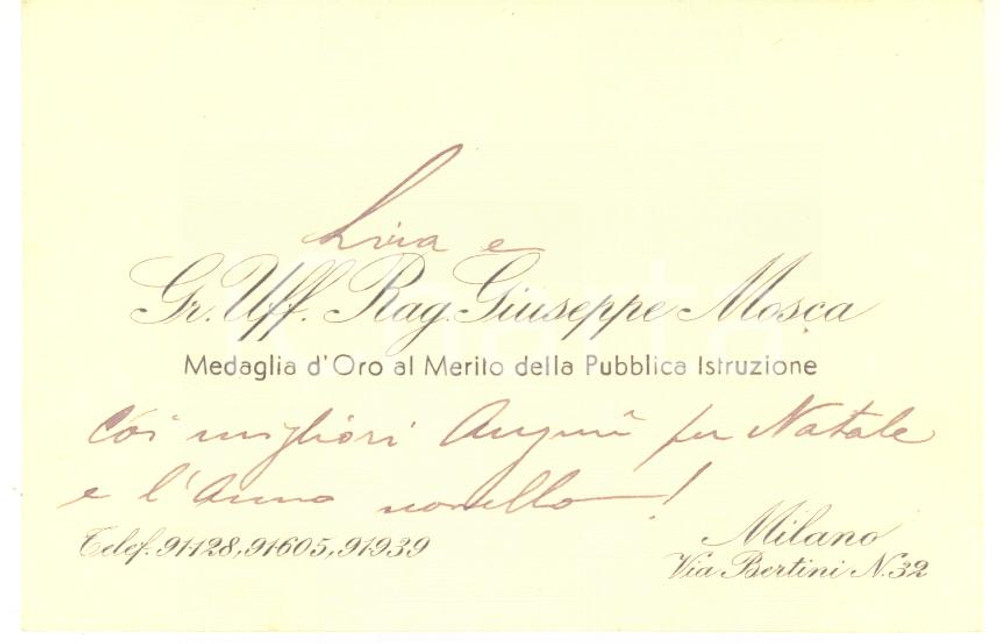 Livia e
Gr. Uff. Rag. Giuseppe Mosca
Medaglia d'Oro al Merito della Pubblica Istruzione
Coi migliori Auguri per Natale
e l'Anno novello!
Telef. 91-128, 91-605, 91-939
Milano
Via Bertini N. 32